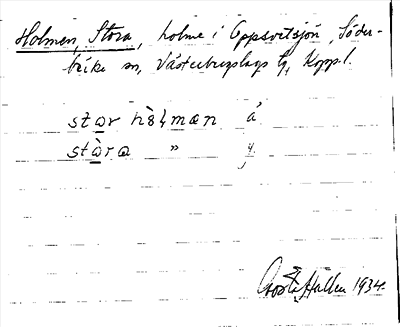 Holmen, Stora, holme i Oppsvetsjön, Söder-
bärke sn, Västerbergslags tg, Koppl.
star hòḷmæn á
stàra " y.
Gösta Hallén 1934.